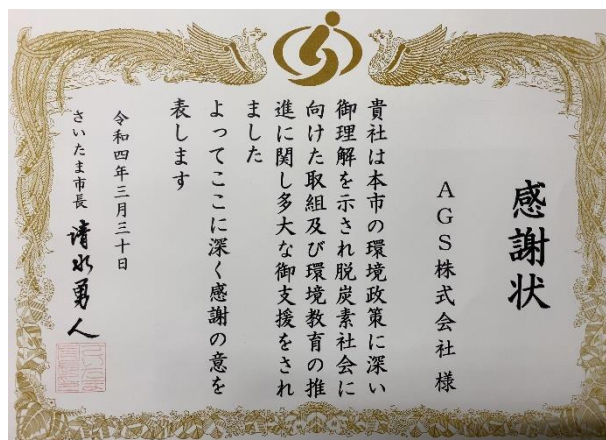 感謝状
AGS株式会社 様
貴社は本市の環境政策に深い
御理解を示され脱炭素社会に
向けた取組及び環境教育の推
進に関し多大な御支援をされ
ました
よってここに深く感謝の意を
表します
令和四年三月三十日
さいたま市長 清水勇人